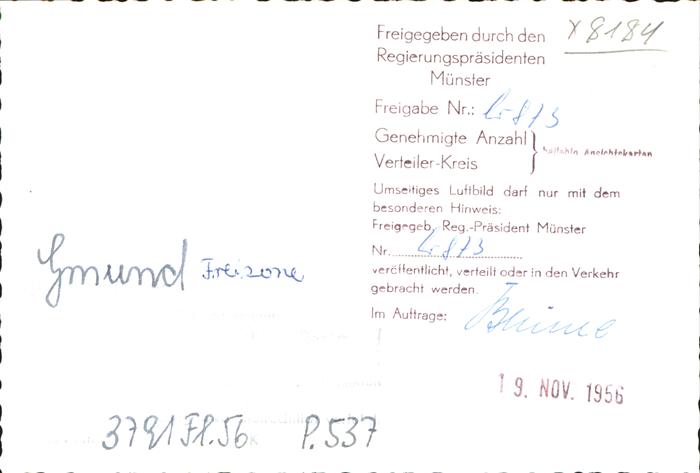 Freigegeben durch den
Regierungspräsidenten
Münster
x 8184
Freigabe Nr.: Lr 873
Genehmigte Anzahl
Verteiler-Kreis
Ansichtskarten
Umseitiges Luftbild darf nur mit dem
besonderen Hinweis:
Freigegeb. Reg.-Präsident Münster
Nr. Lr 873
veröffentlicht, verteilt oder in den Verkehr
gebracht werden.
Im Auftrage:
Gmünd Freizone
19. NOV. 1956
3791 Fl. 56 P. 537